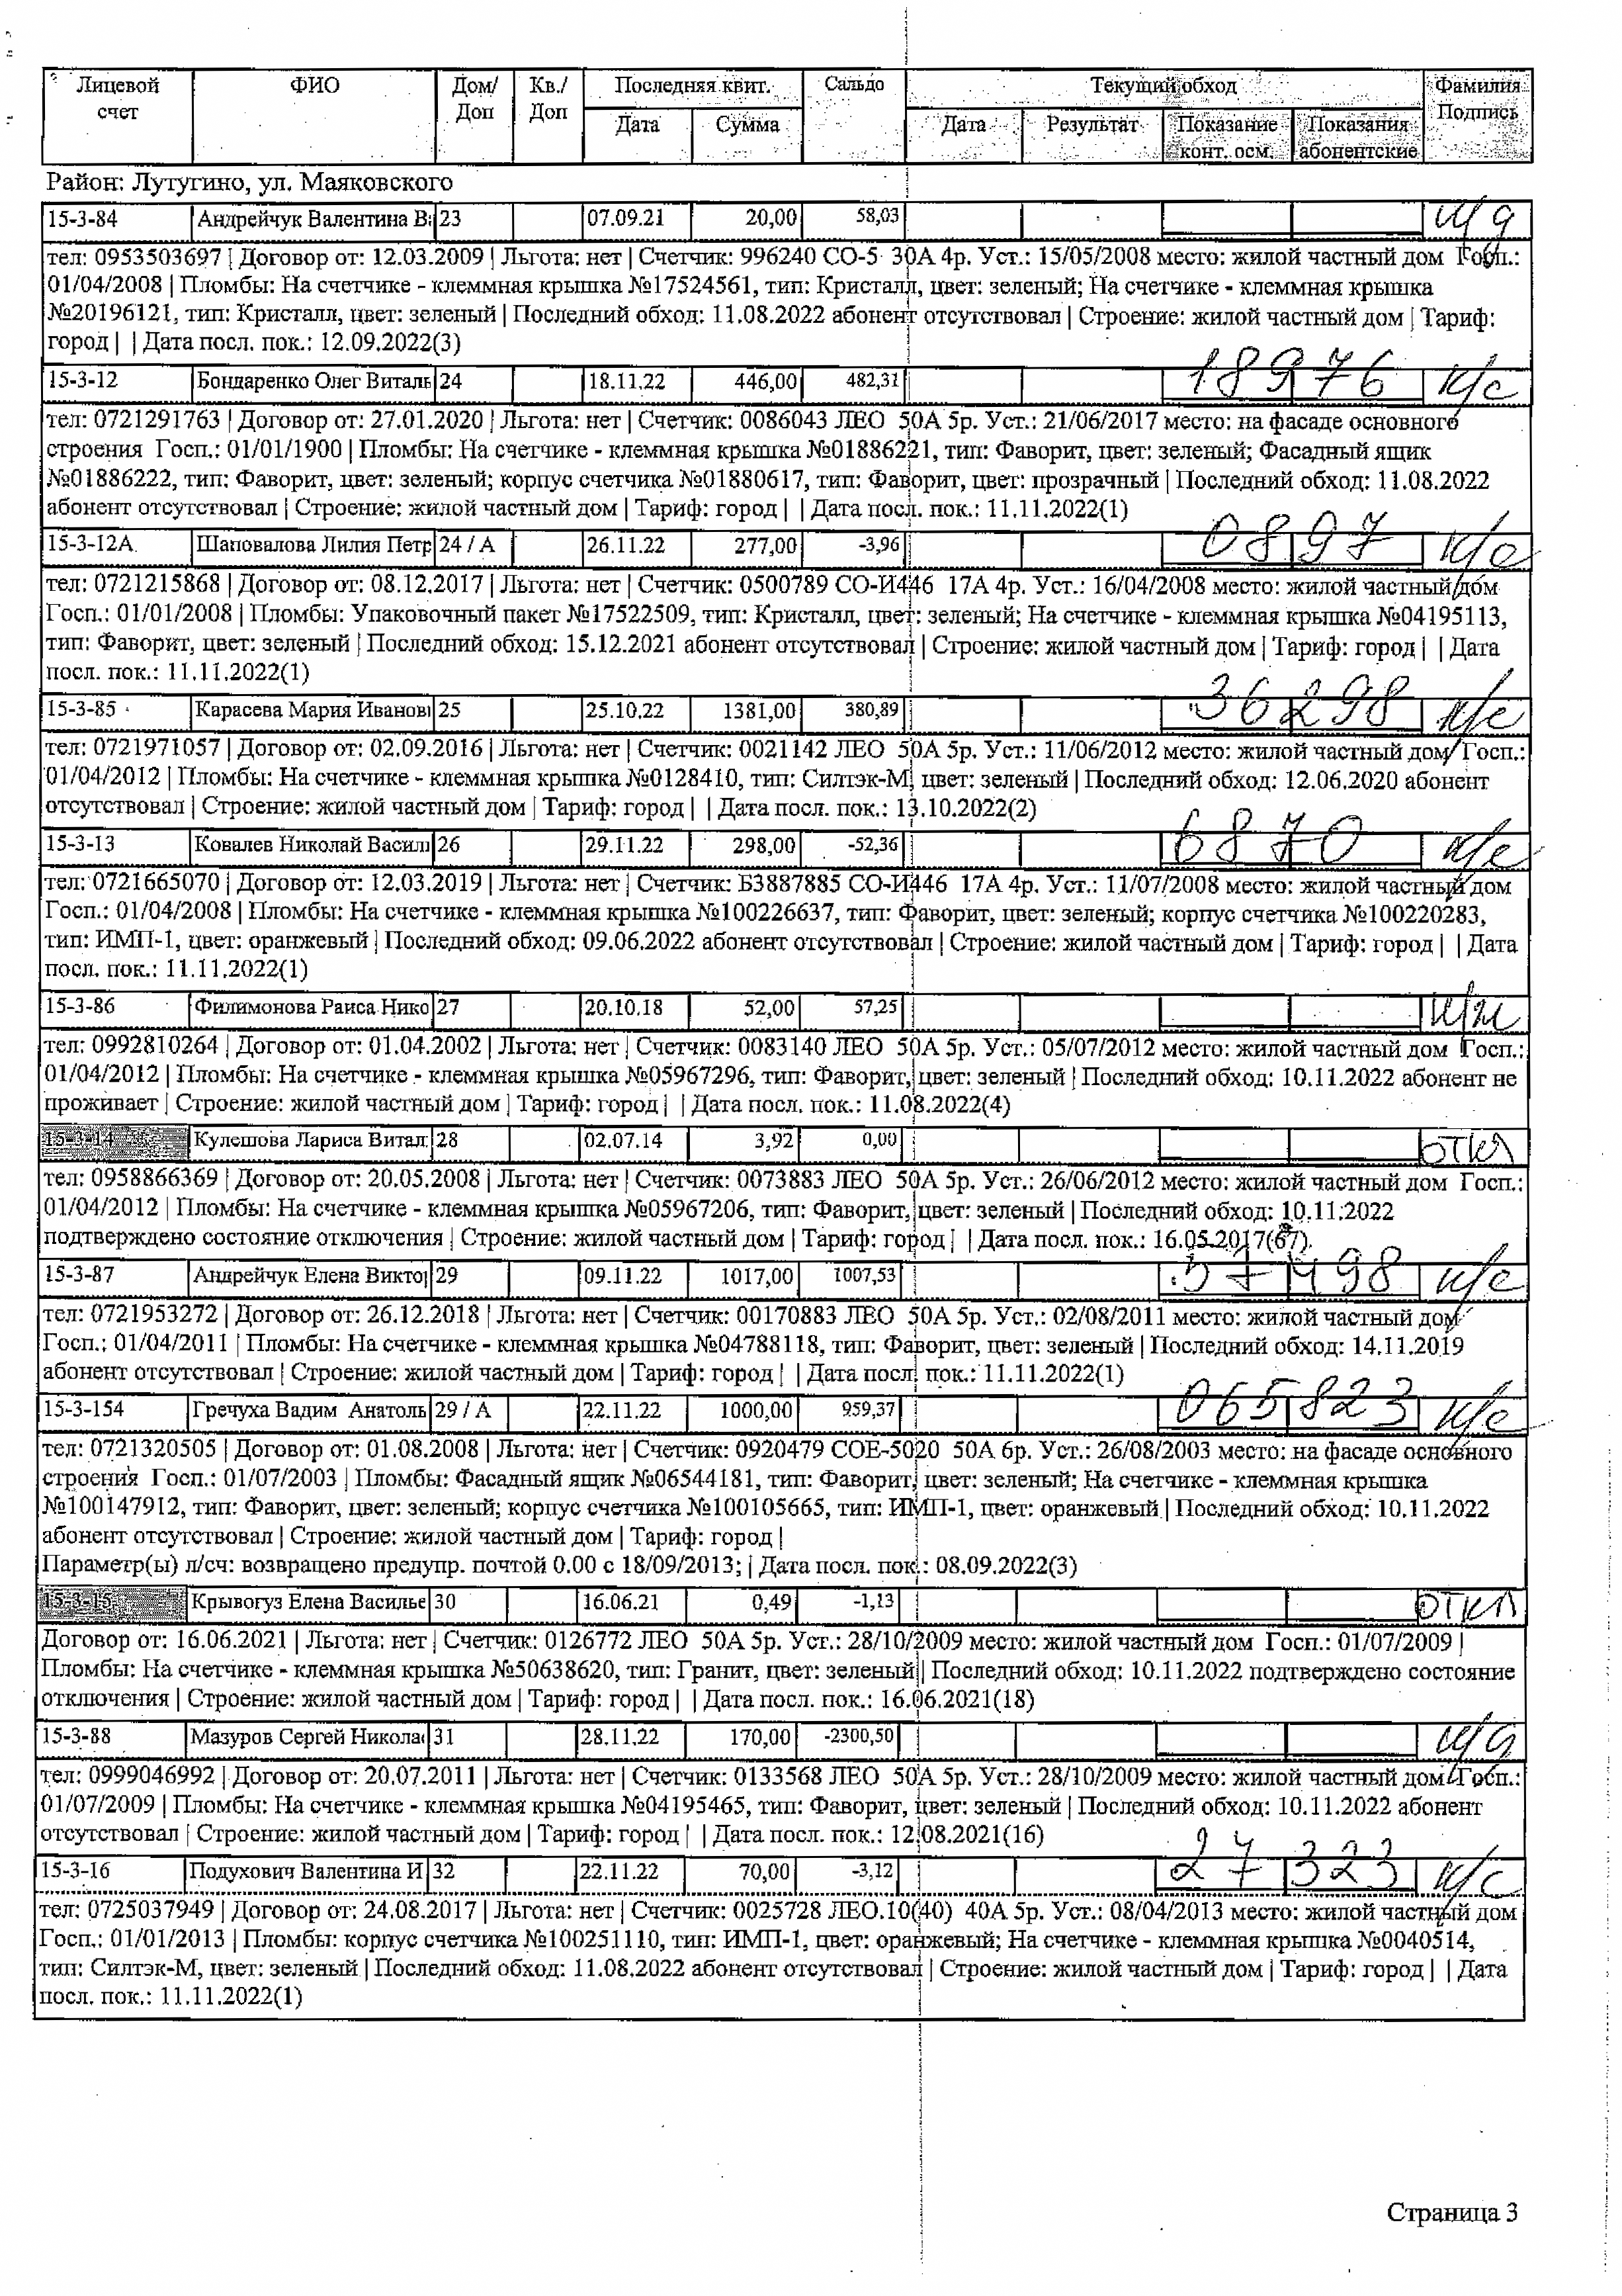 Лицевой счет ФИО Дом/ Доп Кв./ Доп Последняя квит. Сальдо Текущий обход Фамилия Подпись
Дата Сумма Дата Результат Показание конт. осм. Показания абонентские
Район: Лутугино, ул. Маяковского
15-3-84 Андрейчук Валентина В 23 07.09.21 20,00 58,03 н/д
тел: 0953503697 | Договор от: 12.03.2009 | Льгота: нет | Счетчик: 996240 СО-5 30А 4р. Уст.: 15/05/2008 место: жилой частный дом Госп.:
01/04/2008 | Пломбы: На счетчике - клеммная крышка №17524561, тип: Кристалл, цвет: зеленый; На счетчике - клеммная крышка
№20196121, тип: Кристалл, цвет: зеленый | Последний обход: 11.08.2022 абонент отсутствовал | Строение: жилой частный дом | Тариф:
город | | Дата посл. пок.: 12.09.2022(3)
15-3-12 Бондаренко Олег Виталь 24 18.11.22 446,00 482,31 18976 к/с
тел: 0721291763 | Договор от: 27.01.2020 | Льгота: нет | Счетчик: 0086043 ЛЕО 50А 5р. Уст.: 21/06/2017 место: на фасаде основного
строения Госп.: 01/01/1900 | Пломбы: На счетчике - клеммная крышка №01886221, тип: Фаворит, цвет: зеленый; Фасадный ящик
№01886222, тип: Фаворит, цвет: зеленый; корпус счетчика №01880617, тип: Фаворит, цвет: прозрачный | Последний обход: 11.08.2022
абонент отсутствовал | Строение: жилой частный дом | Тариф: город | | Дата посл. пок.: 11.11.2022(1)
15-3-12А Шаповалова Лилия Петр 24 / А 26.11.22 277,00 -3,96 0897 к/с
тел: 0721215868 | Договор от: 08.12.2017 | Льгота: нет | Счетчик: 0500789 СО-И446 17А 4р. Уст.: 16/04/2008 место: жилой частный дом
Госп.: 01/01/2008 | Пломбы: Упаковочный пакет №17522509, тип: Кристалл, цвет: зеленый; На счетчике - клеммная крышка №04195113,
тип: Фаворит, цвет: зеленый | Последний обход: 15.12.2021 абонент отсутствовал | Строение: жилой частный дом | Тариф: город | | Дата
посл. пок.: 11.11.2022(1)
15-3-85 Карасева Мария Иванов 25 25.10.22 1381,00 380,89 36298 к/с
тел: 0721971057 | Договор от: 02.09.2016 | Льгота: нет | Счетчик: 0021142 ЛЕО 50А 5р. Уст.: 11/06/2012 место: жилой частный дом Госп.:
01/04/2012 | Пломбы: На счетчике - клеммная крышка №0128410, тип: Силтэк-М, цвет: зеленый | Последний обход: 12.06.2020 абонент
отсутствовал | Строение: жилой частный дом | Тариф: город | | Дата посл. пок.: 13.10.2022(2)
15-3-13 Ковалев Николай Васил 26 29.11.22 298,00 -52,36 6870 к/с
тел: 0721665070 | Договор от: 12.03.2019 | Льгота: нет | Счетчик: Б3887885 СО-И446 17А 4р. Уст.: 11/07/2008 место: жилой частный дом
Госп.: 01/04/2008 | Пломбы: На счетчике - клеммная крышка №100226637, тип: Фаворит, цвет: зеленый; корпус счетчика №100220283,
тип: ИМП-1, цвет: оранжевый | Последний обход: 09.06.2022 абонент отсутствовал | Строение: жилой частный дом | Тариф: город | | Дата
посл. пок.: 11.11.2022(1)
15-3-86 Филимонова Раиса Нико 27 20.10.18 52,00 57,25
тел: 0992810264 | Договор от: 01.04.2002 | Льгота: нет | Счетчик: 0083140 ЛЕО 50А 5р. Уст.: 05/07/2012 место: жилой частный дом Госп.:
01/04/2012 | Пломбы: На счетчике - клеммная крышка №05967296, тип: Фаворит, цвет: зеленый | Последний обход: 10.11.2022 абонент не
проживает | Строение: жилой частный дом | Тариф: город | | Дата посл. пок.: 11.08.2022(4)
15-3-14 Кулешова Лариса Витал 28 02.07.14 3,92 0,00 откл
тел: 0958866369 | Договор от: 20.05.2008 | Льгота: нет | Счетчик: 0073883 ЛЕО 50А 5р. Уст.: 26/06/2012 место: жилой частный дом Госп.:
01/04/2012 | Пломбы: На счетчике - клеммная крышка №05967206, тип: Фаворит, цвет: зеленый | Последний обход: 10.11.2022
подтверждено состояние отключения | Строение: жилой частный дом | Тариф: город | | Дата посл. пок.: 16.05.2017(67)
15-3-87 Андрейчук Елена Викто 29 09.11.22 1017,00 1007,53 57498 к/с
тел: 0721953272 | Договор от: 26.12.2018 | Льгота: нет | Счетчик: 00170883 ЛЕО 50А 5р. Уст.: 02/08/2011 место: жилой частный дом
Госп.: 01/04/2011 | Пломбы: На счетчике - клеммная крышка №04788118, тип: Фаворит, цвет: зеленый | Последний обход: 14.11.2019
абонент отсутствовал | Строение: жилой частный дом | Тариф: город | | Дата посл. пок.: 11.11.2022(1)
15-3-154 Гречуха Вадим Анатоль 29 / А 22.11.22 1000,00 959,37 065823 к/с
тел: 0721320505 | Договор от: 01.08.2008 | Льгота: нет | Счетчик: 0920479 СОЕ-5020 50А 6р. Уст.: 26/08/2003 место: на фасаде основного
строения Госп.: 01/07/2003 | Пломбы: Фасадный ящик №06544181, тип: Фаворит, цвет: зеленый; На счетчике - клеммная крышка
№100147912, тип: Фаворит, цвет: зеленый; корпус счетчика №100105665, тип: ИМП-1, цвет: оранжевый | Последний обход: 10.11.2022
абонент отсутствовал | Строение: жилой частный дом | Тариф: город |
Параметр(ы) л/сч: возвращено предупр. почтой 0.00 с 18/09/2013; | Дата посл. пок.: 08.09.2022(3)
15-3-15 Крывогуз Елена Василье 30 16.06.21 0,49 -1,13 откл
Договор от: 16.06.2021 | Льгота: нет | Счетчик: 0126772 ЛЕО 50А 5р. Уст.: 28/10/2009 место: жилой частный дом Госп.: 01/07/2009 |
Пломбы: На счетчике - клеммная крышка №50638620, тип: Гранит, цвет: зеленый | Последний обход: 10.11.2022 подтверждено состояние
отключения | Строение: жилой частный дом | Тариф: город | | Дата посл. пок.: 16.06.2021(18)
15-3-88 Мазуров Сергей Никола 31 28.11.22 170,00 -2300,50 н/д
тел: 0999046992 | Договор от: 20.07.2011 | Льгота: нет | Счетчик: 0133568 ЛЕО 50А 5р. Уст.: 28/10/2009 место: жилой частный дом Госп.:
01/07/2009 | Пломбы: На счетчике - клеммная крышка №04195465, тип: Фаворит, цвет: зеленый | Последний обход: 10.11.2022 абонент
отсутствовал | Строение: жилой частный дом | Тариф: город | | Дата посл. пок.: 12.08.2021(16)
15-3-16 Подухович Валентина И 32 22.11.22 70,00 -3,12 27323 к/с
тел: 0725037949 | Договор от: 24.08.2017 | Льгота: нет | Счетчик: 0025728 ЛЕО.10(40) 40А 5р. Уст.: 08/04/2013 место: жилой частный дом
Госп.: 01/01/2013 | Пломбы: корпус счетчика №100251110, тип: ИМП-1, цвет: оранжевый; На счетчике - клеммная крышка №0040514,
тип: Силтэк-М, цвет: зеленый | Последний обход: 11.08.2022 абонент отсутствовал | Строение: жилой частный дом | Тариф: город | | Дата
посл. пок.: 11.11.2022(1)
Страница 3